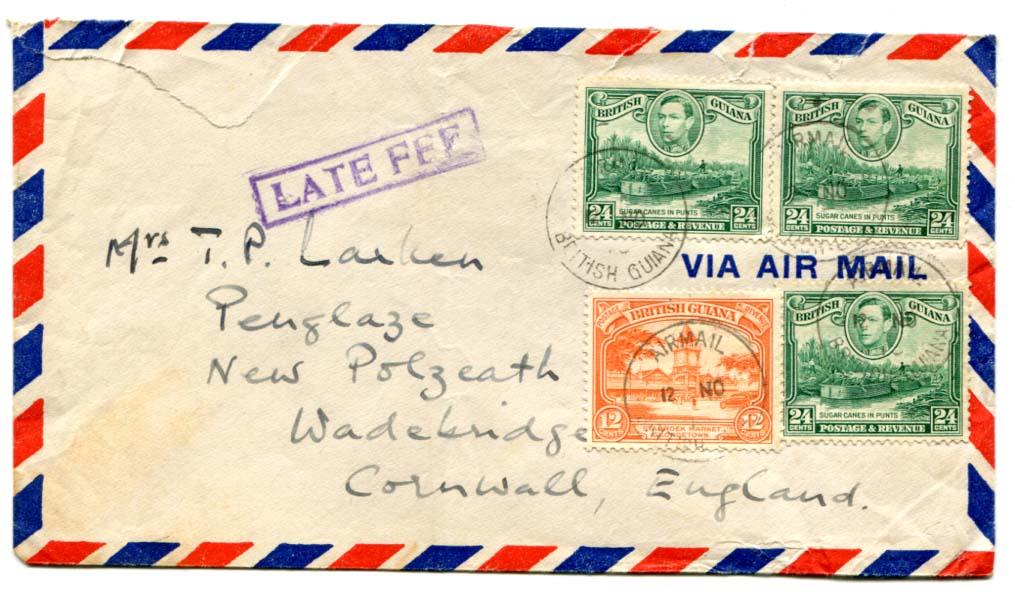 BRITISH GUIANA
24 CENTS 24 CENTS
SUGAR CANES IN PUNTS
POSTAGE & REVENUE
BRITISH GUIANA
24 CENTS 24 CENTS
SUGAR CANES IN PUNTS
POSTAGE & REVENUE
LATE FEE
BRITISH GUIANA
AIRMAIL
NO
VIA AIR MAIL
Mrs T. P. Larken
Penglaze
New Polzeath
Wadebridge
Cornwall, England.
POSTAGE BRITISH GUIANA REVENUE
12 CENTS 12 CENTS
STABROEK MARKET
GEORGETOWN
AIRMAIL
12 NO
BRITISH GUIANA
24 CENTS 24 CENTS
SUGAR CANES IN PUNTS
POSTAGE & REVENUE
AIRMAIL
12 NO